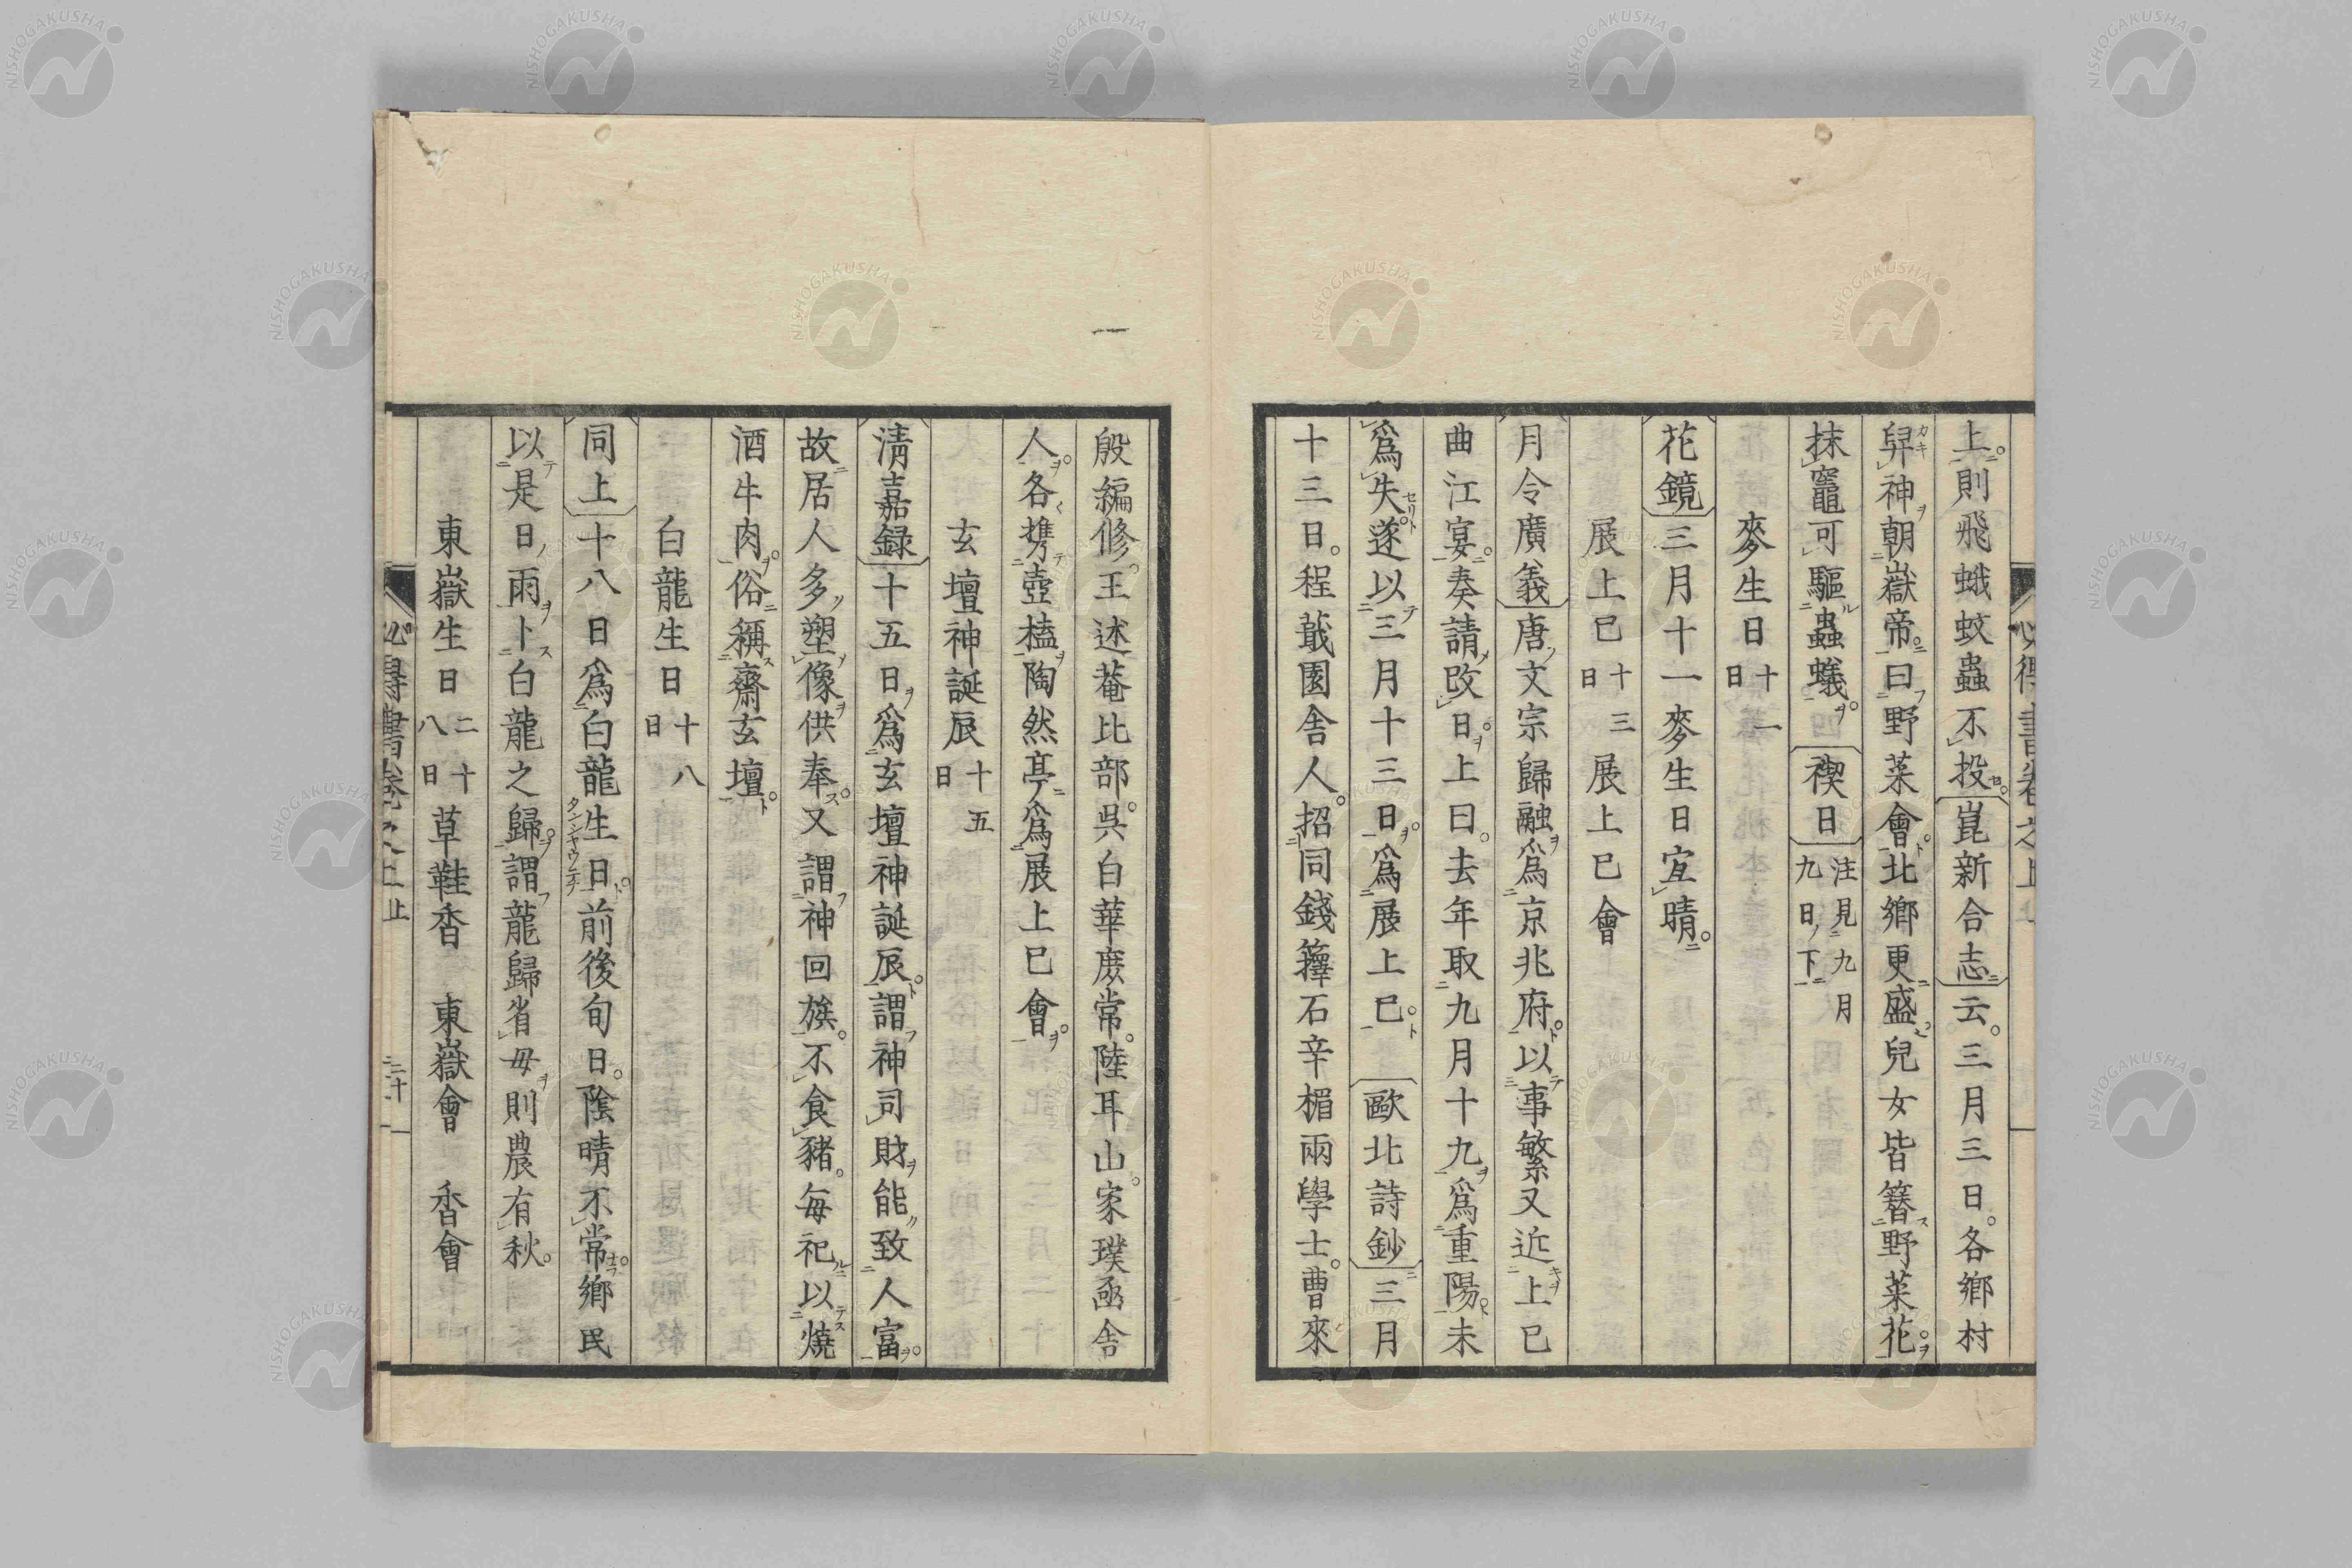 上則飛蛾蚊蟲不投崑新合志云三月三日各鄉村
舁神朝嶽帝曰野菜會北鄉更盛兒女皆簪野菜花
抹竈可驅蟲蟻禊日注見九月九日下
麥生日十一日
花鏡三月十一麥生日宜晴
展上巳十三日展上巳會
月令廣義唐文宗歸融爲京兆府以事繁又近上巳
曲江宴奏請改日上曰去年取九月十九爲重陽未
爲失遂以三月十三日爲展上巳歐北詩鈔三月
十三日程蕺園舍人招同錢籜石辛楣兩學士曹來
殷編修王述菴比部吳白華慶常陸耳山家璞函舍
人各攜壺榼陶然亭爲展上巳會
玄壇神誕辰十五日
清嘉録十五日爲玄壇神誕辰謂神司財能致人富
故居人多塑像供奉又謂神回族不食豬每祀以燒
酒牛肉俗稱齋玄壇
白龍生日十八日
同上十八日爲白龍生日前後旬日陰晴不常鄉民
以是日雨卜白龍之歸謂龍歸省母則農有秋
東嶽生日二十八日草鞋香 東嶽會 香會